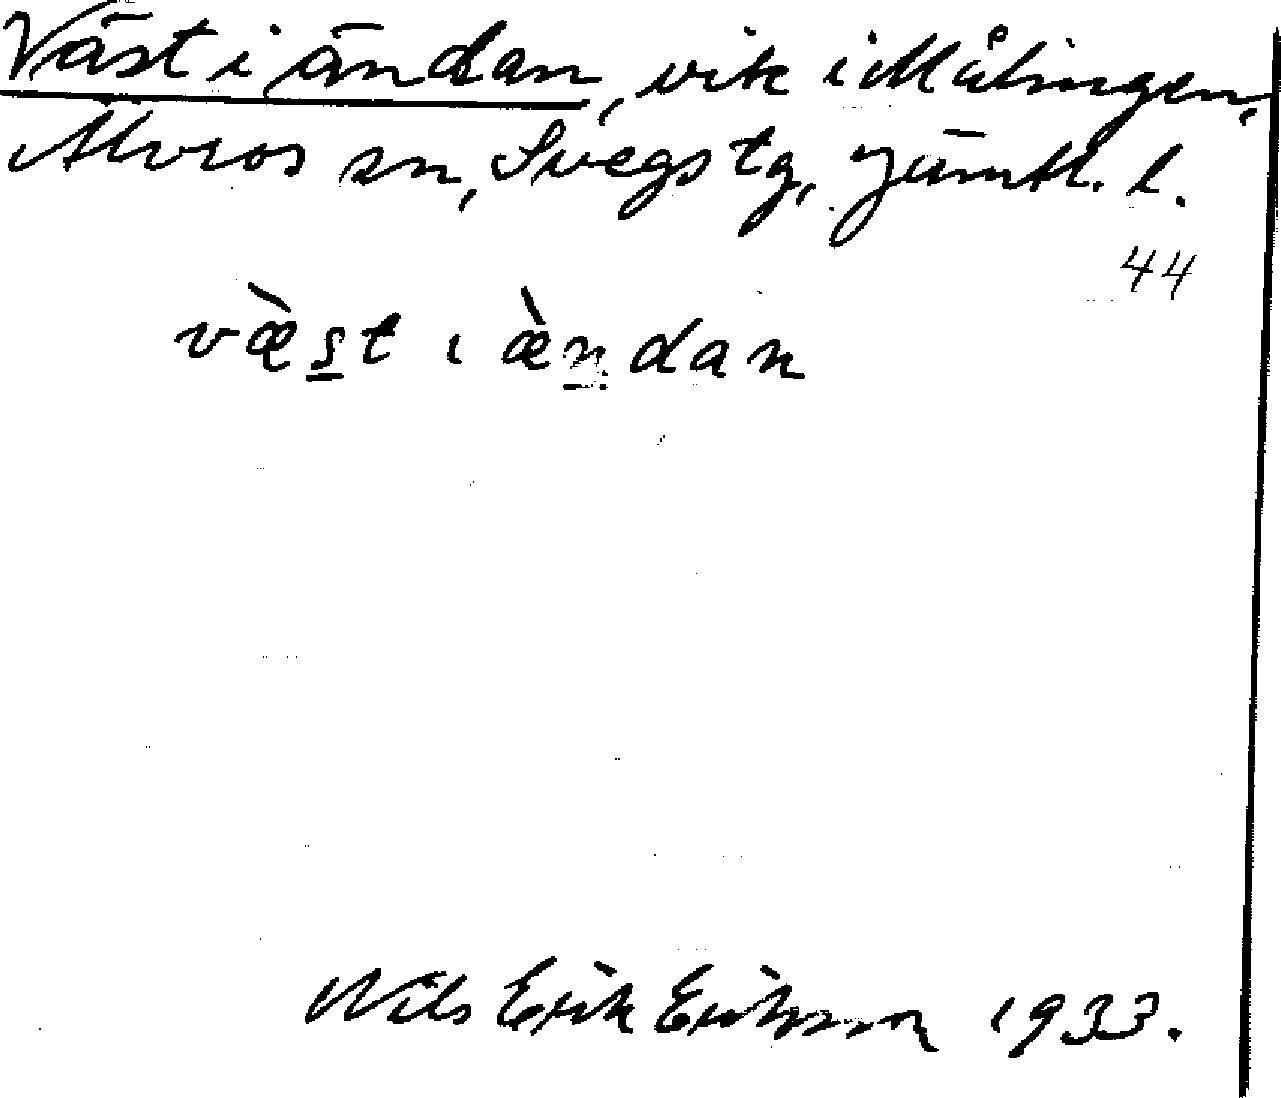 Väst i ändan, vik i Målingen,
Alvros sn, Svegs tg, Jämtl. l.
44
væ̀s̲t ɩ æ̀n̲dan
Nils Erik Eriksson 1933.